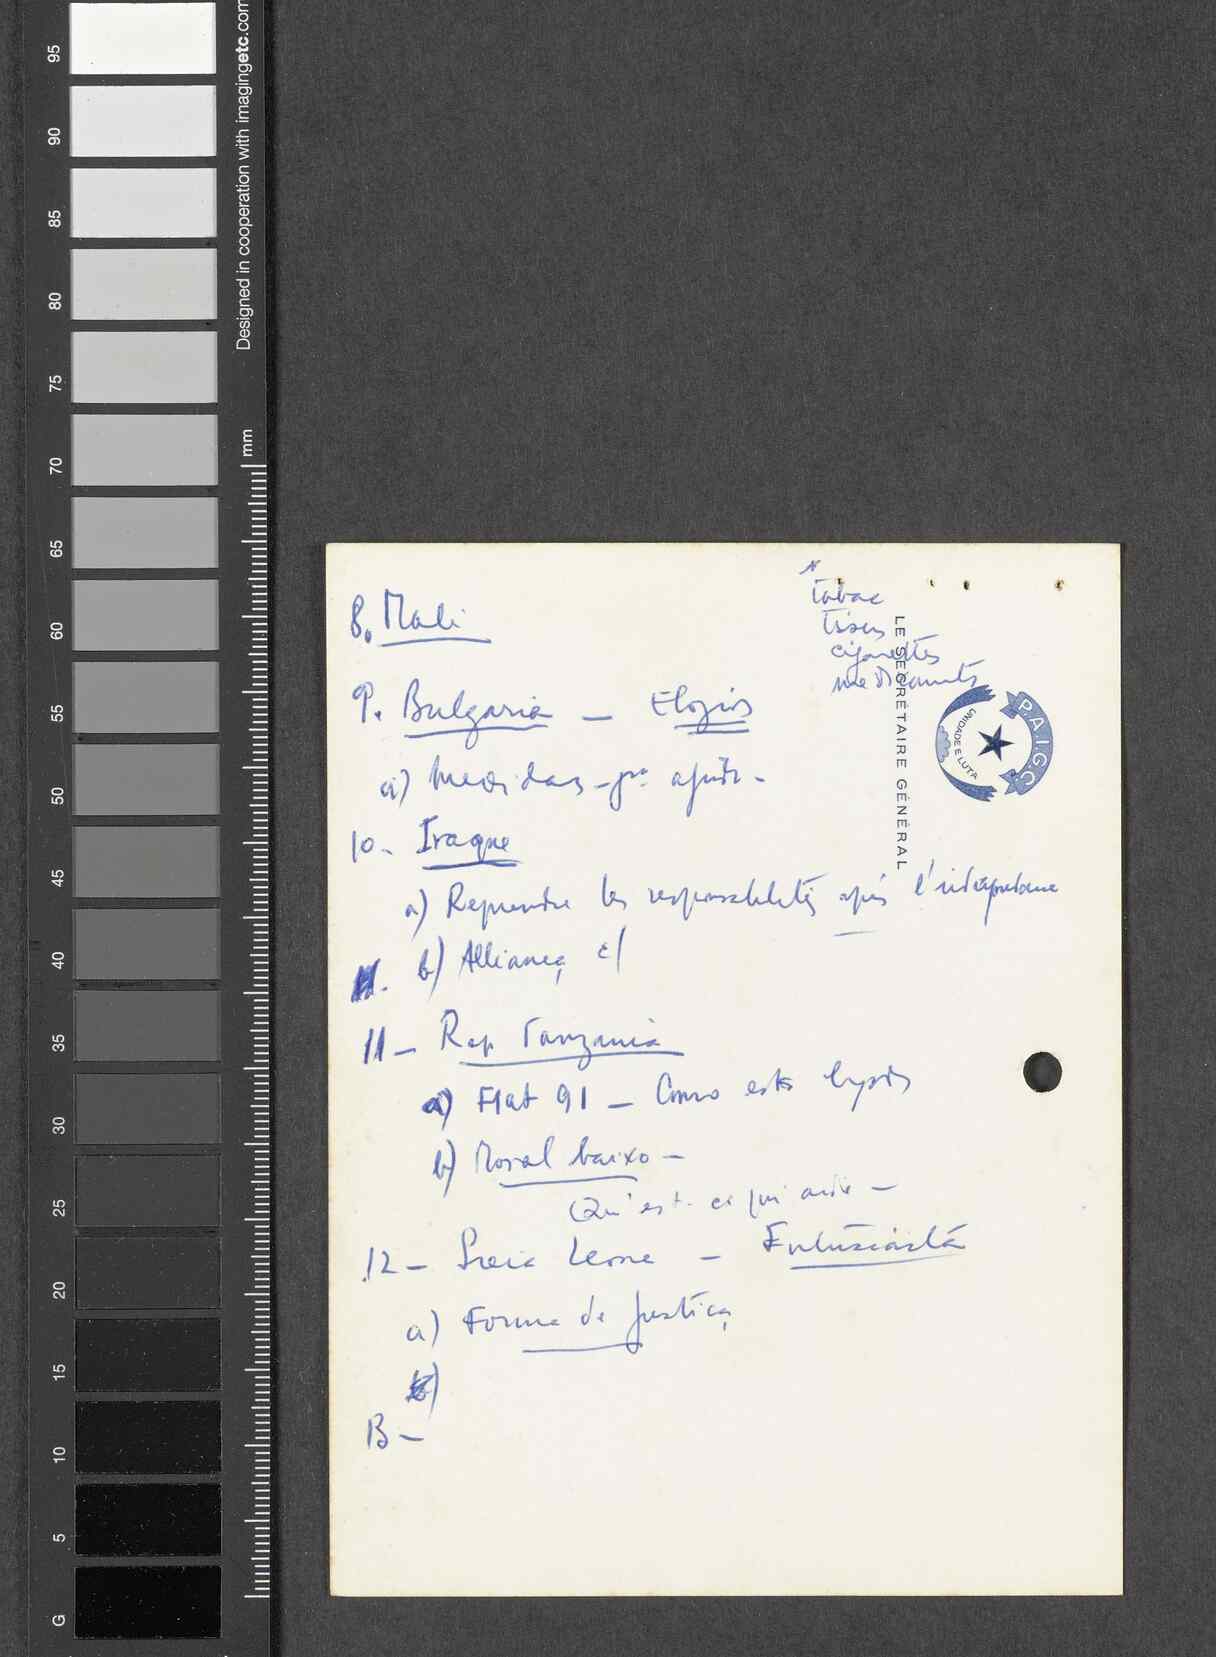 tabac
tissus
cigarettes
medicaments
8. Mali
9. Bulgaria — Elogios
a) Medidas - pa ajuda -
10 - Iraque
a) Reprendre les responsabilités après l'indépendance
11. b) Aliança c/
11 - Rep Tanzania
a) Fiat 91 — Como está
b) Moral baixo —
Qu'est-ce qui arrive —
12 - Sierra Leone — Entusiasta
a) Forma de justiça
b)
13 -
LE SECRÉTAIRE GÉNÉRAL
P.A.I.G.C.
UNIDADE E LUTA
Designed in cooperation with imagingetc.com
mm
95
90
85
80
75
70
65
60
55
50
45
40
35
30
25
20
15
10
5
G